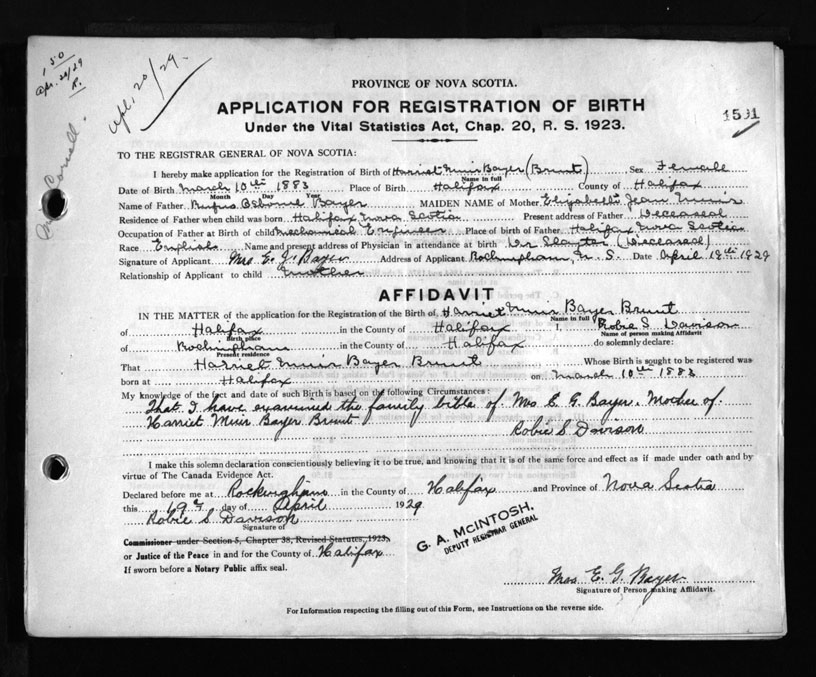 1 50
Apr. 20/29
R.
Apl. 20/29.
PROVINCE OF NOVA SCOTIA.
APPLICATION FOR REGISTRATION OF BIRTH
Under the Vital Statistics Act, Chap. 20, R. S. 1923.
1591
TO THE REGISTRAR GENERAL OF NOVA SCOTIA:
I hereby make application for the Registration of Birth of Harriet Muir Bayer (Brunt) Sex Female
Name in full
Date of Birth March 10th 1883 Place of Birth Halifax County of Halifax
Month Day Year
Name of Father Rufus Bayer MAIDEN NAME of Mother Elizabeth Jean Muir
Residence of Father when child was born Halifax Nova Scotia Present address of Father Deceased
Occupation of Father at Birth of child Mechanical Engineer Place of birth of Father Halifax Nova Scotia
Race English Name and present address of Physician in attendance at birth Dr Slayter (Deceased)
Signature of Applicant Mrs E. J. Bayer Address of Applicant Rockingham, N. S. Date April 19th 1929
Relationship of Applicant to child Mother
AFFIDAVIT
IN THE MATTER of the application for the Registration of the Birth of, Harriet Muir Bayer Brunt
Name in full
of Halifax in the County of Halifax I, Robie S Davison
Birth place Name of person making Affidavit
of Rockingham of the County of Halifax do solemnly declare:
Present residence
That Harriet Muir Bayer Brunt Whose Birth is sought to be registered was
born at Halifax on March 10th 1883
My knowledge of the fact and date of such Birth is based on the following Circumstances:
That I have examined the family bible of Mrs E. G. Bayer. Mother of
Harriet Muir Bayer Brunt
Robie S Davison
I make this solemn declaration conscientiously believing it to be true, and knowing that it is of the same force and effect as if made under oath and by
virtue of The Canada Evidence Act.
Declared before me at Rockingham in the County of Halifax and Province of Nova Scotia
this 19th day of April 1929
Robie S Davison
Signature of
Commissioner under Section 5, Chapter 38, Revised Statutes, 1923.
or Justice of the Peace in and for the County of Halifax
If sworn before a Notary Public affix seal.
G. A. McINTOSH,
DEPUTY REGISTRAR GENERAL
Mrs E. G. Bayer
Signature of Person making Affidavit.
For Information respecting the filling out of this Form, see Instructions on the reverse side.